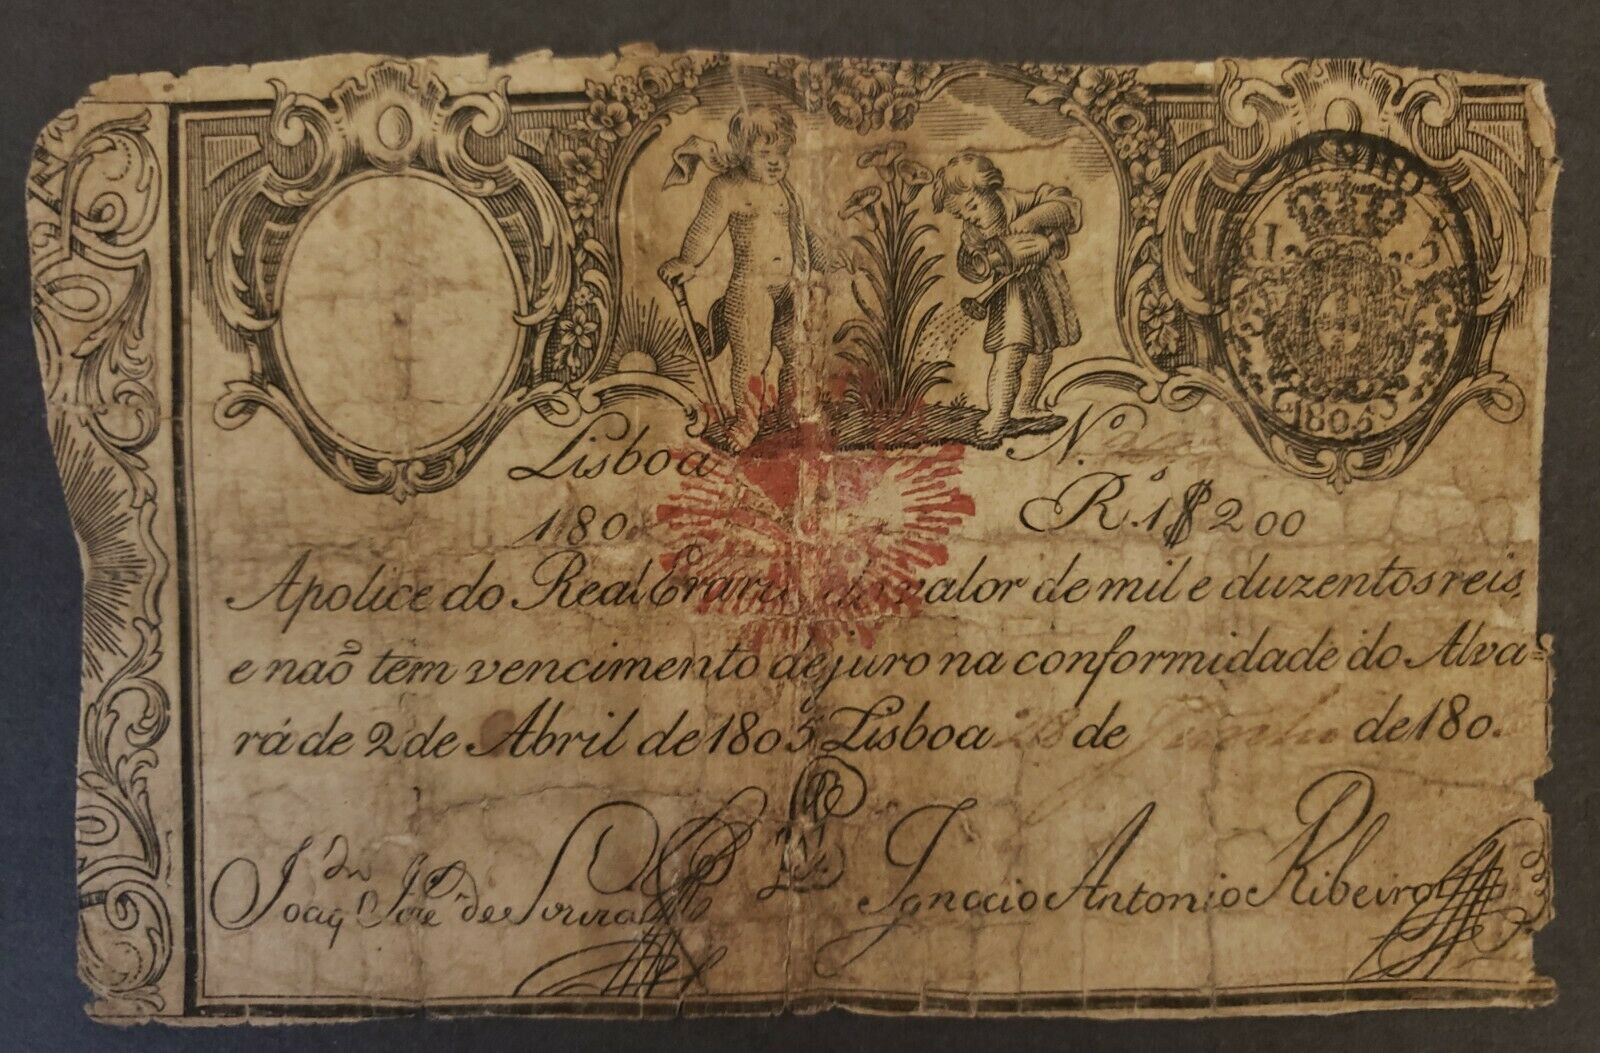 1805
Lisboa Nº
180 R.s 1$200
Apolice do Real Erario do valor de mil e duzentos reis,
e naõ têm vencimento de juro na conformidade do Alva=
rá de 2 de Abril de 1805 Lisboa 28 de Junho de 180
Joaqm José de Souza Ignacio Antonio Ribeiro